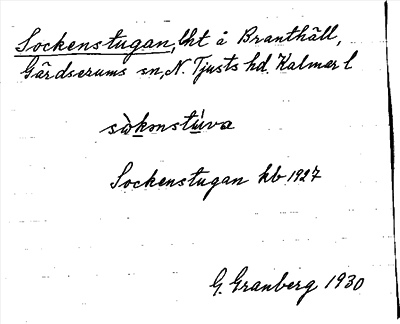 Sockenstugan, lht å Branthäll,
Gärdserums sn, N. Tjusts hd. Kalmar l
sòkonstúva
Sockenstugan kb 1927
G. Granberg 1930